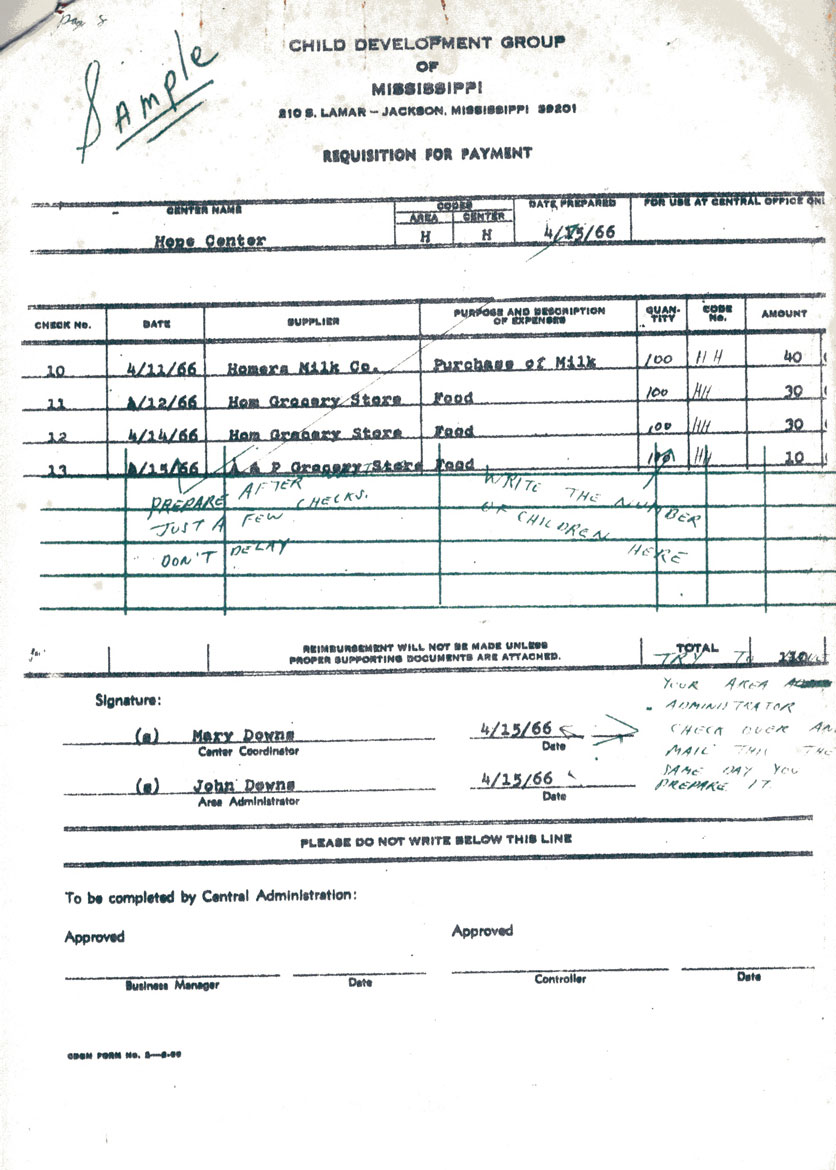 Page 5
Sample
CHILD DEVELOPMENT GROUP
OF
MISSISSIPPI
210 S. LAMAR — JACKSON, MISSISSIPPI 39201
REQUISITION FOR PAYMENT
CENTER NAME CODES DATE PREPARED FOR USE AT CENTRAL OFFICE ONL
AREA CENTER
Hope Center H H 4/15/66
CHECK No. DATE SUPPLIER PURPOSE AND DESCRIPTION OF EXPENSES QUAN-TITY CODE No. AMOUNT
10 4/11/66 Homers Milk Co. Purchase of Milk 100 HH 40
11 4/12/66 Hom Grocery Store Food 100 HH 30
12 4/14/66 Hom Grocery Store Food 100 HH 30
13 4/15/66 A & P Grocery Store Food 100 HH 10
PREPARE AFTER
JUST A FEW CHECKS.
DON'T DELAY
WRITE THE NUMBER
OF CHILDREN
HERE
REIMBURSEMENT WILL NOT BE MADE UNLESS
PROPER SUPPORTING DOCUMENTS ARE ATTACHED.
TOTAL 110
TRY TO
YOUR AREA
ADMINISTRATOR
CHECK OVER AN
MAIL THIS THE
SAME DAY YOU
PREPARE IT.
Signature:
(s) Mary Downs 4/15/66
Center Coordinator Date
(s) John Downs 4/15/66
Area Administrator Date
PLEASE DO NOT WRITE BELOW THIS LINE
To be completed by Central Administration:
Approved Approved
Business Manager Date Controller Date
CDGM FORM No.